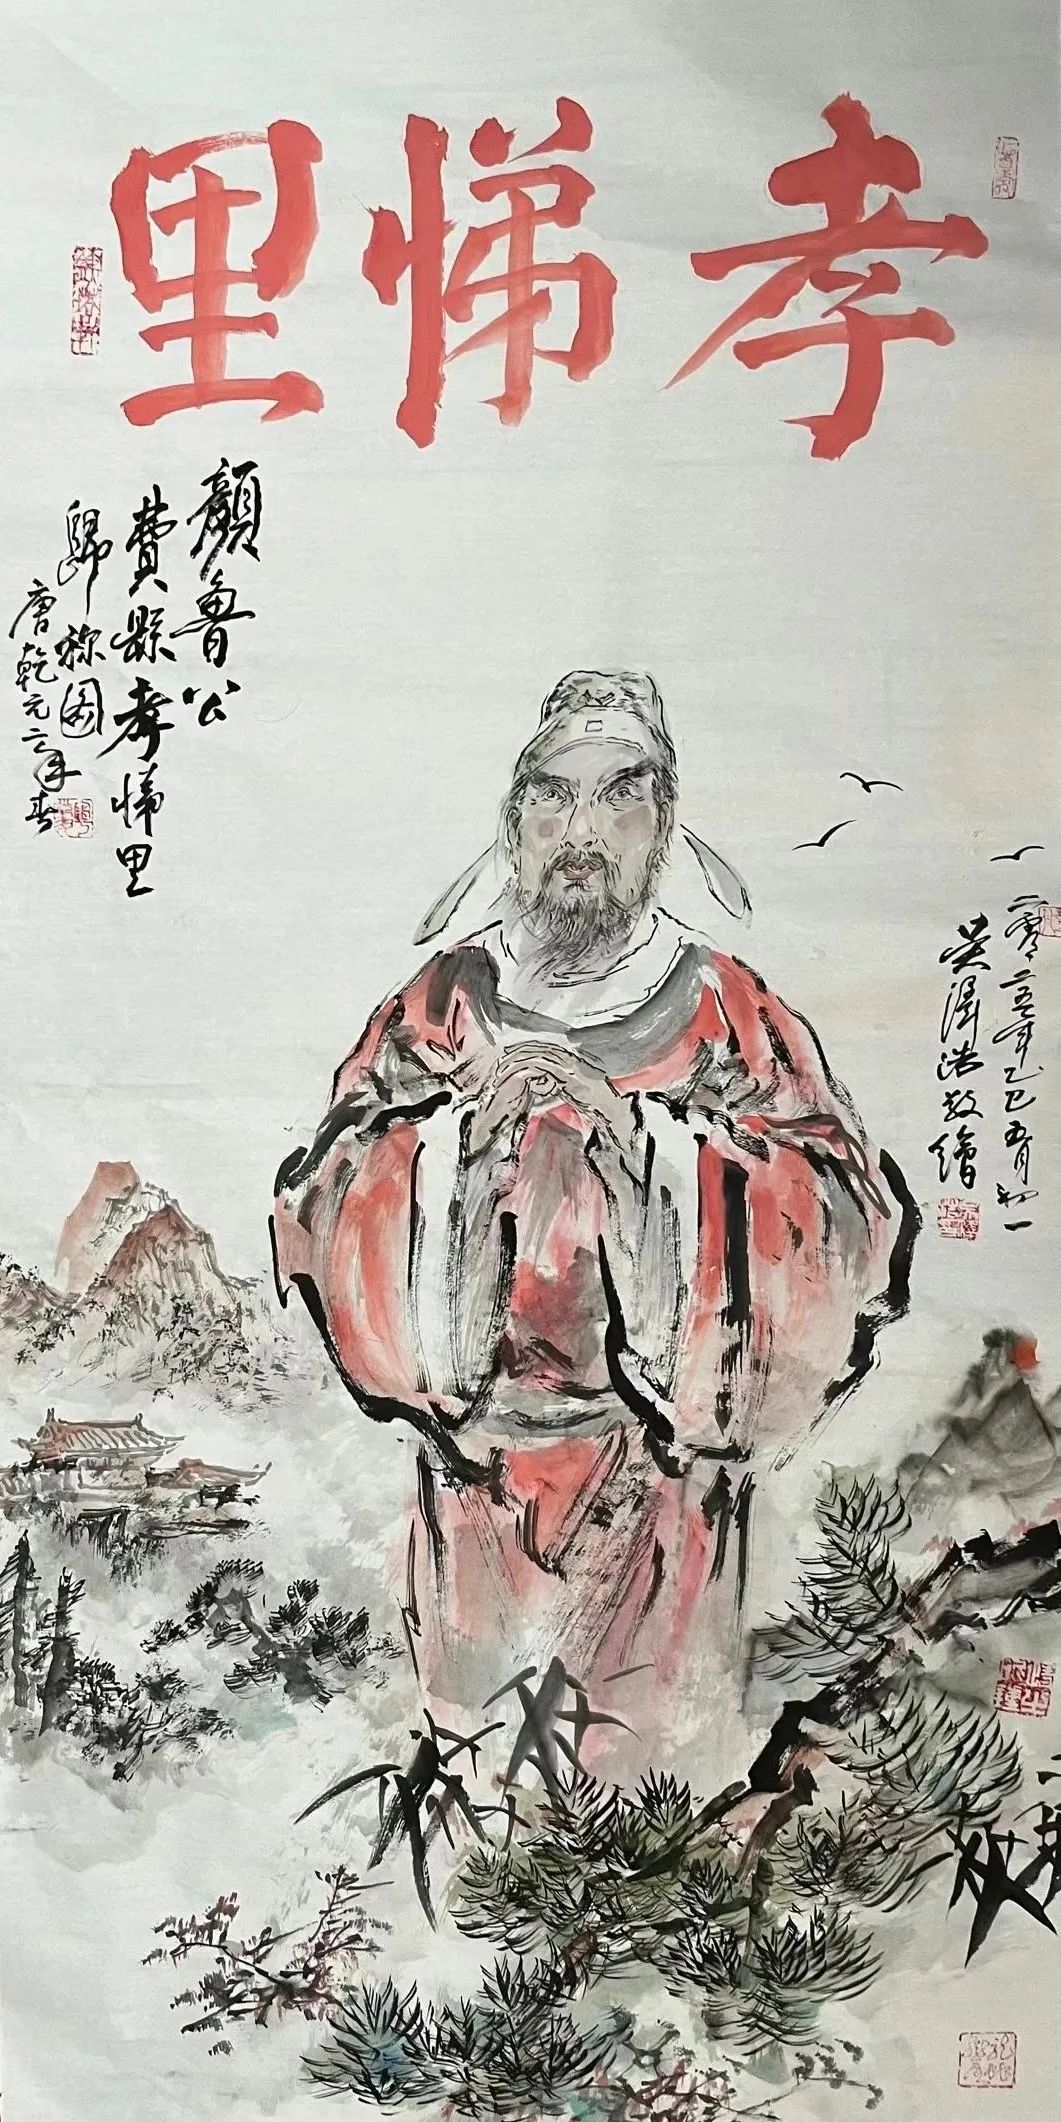 孝悌里
顏魯公
費縣孝悌里
歸祢圖
唐乾元二年春
二零二五年乙巳五月初一
吴泽浩敬繪